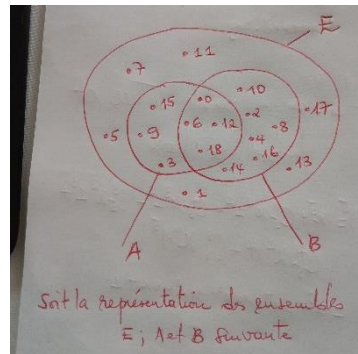 E
11
7
10
15
0
17
2
6
12
8
5
9
4
18
16
3
14
13
1
A
B
Soit la représentation des ensembles
E ; A et B Suivante